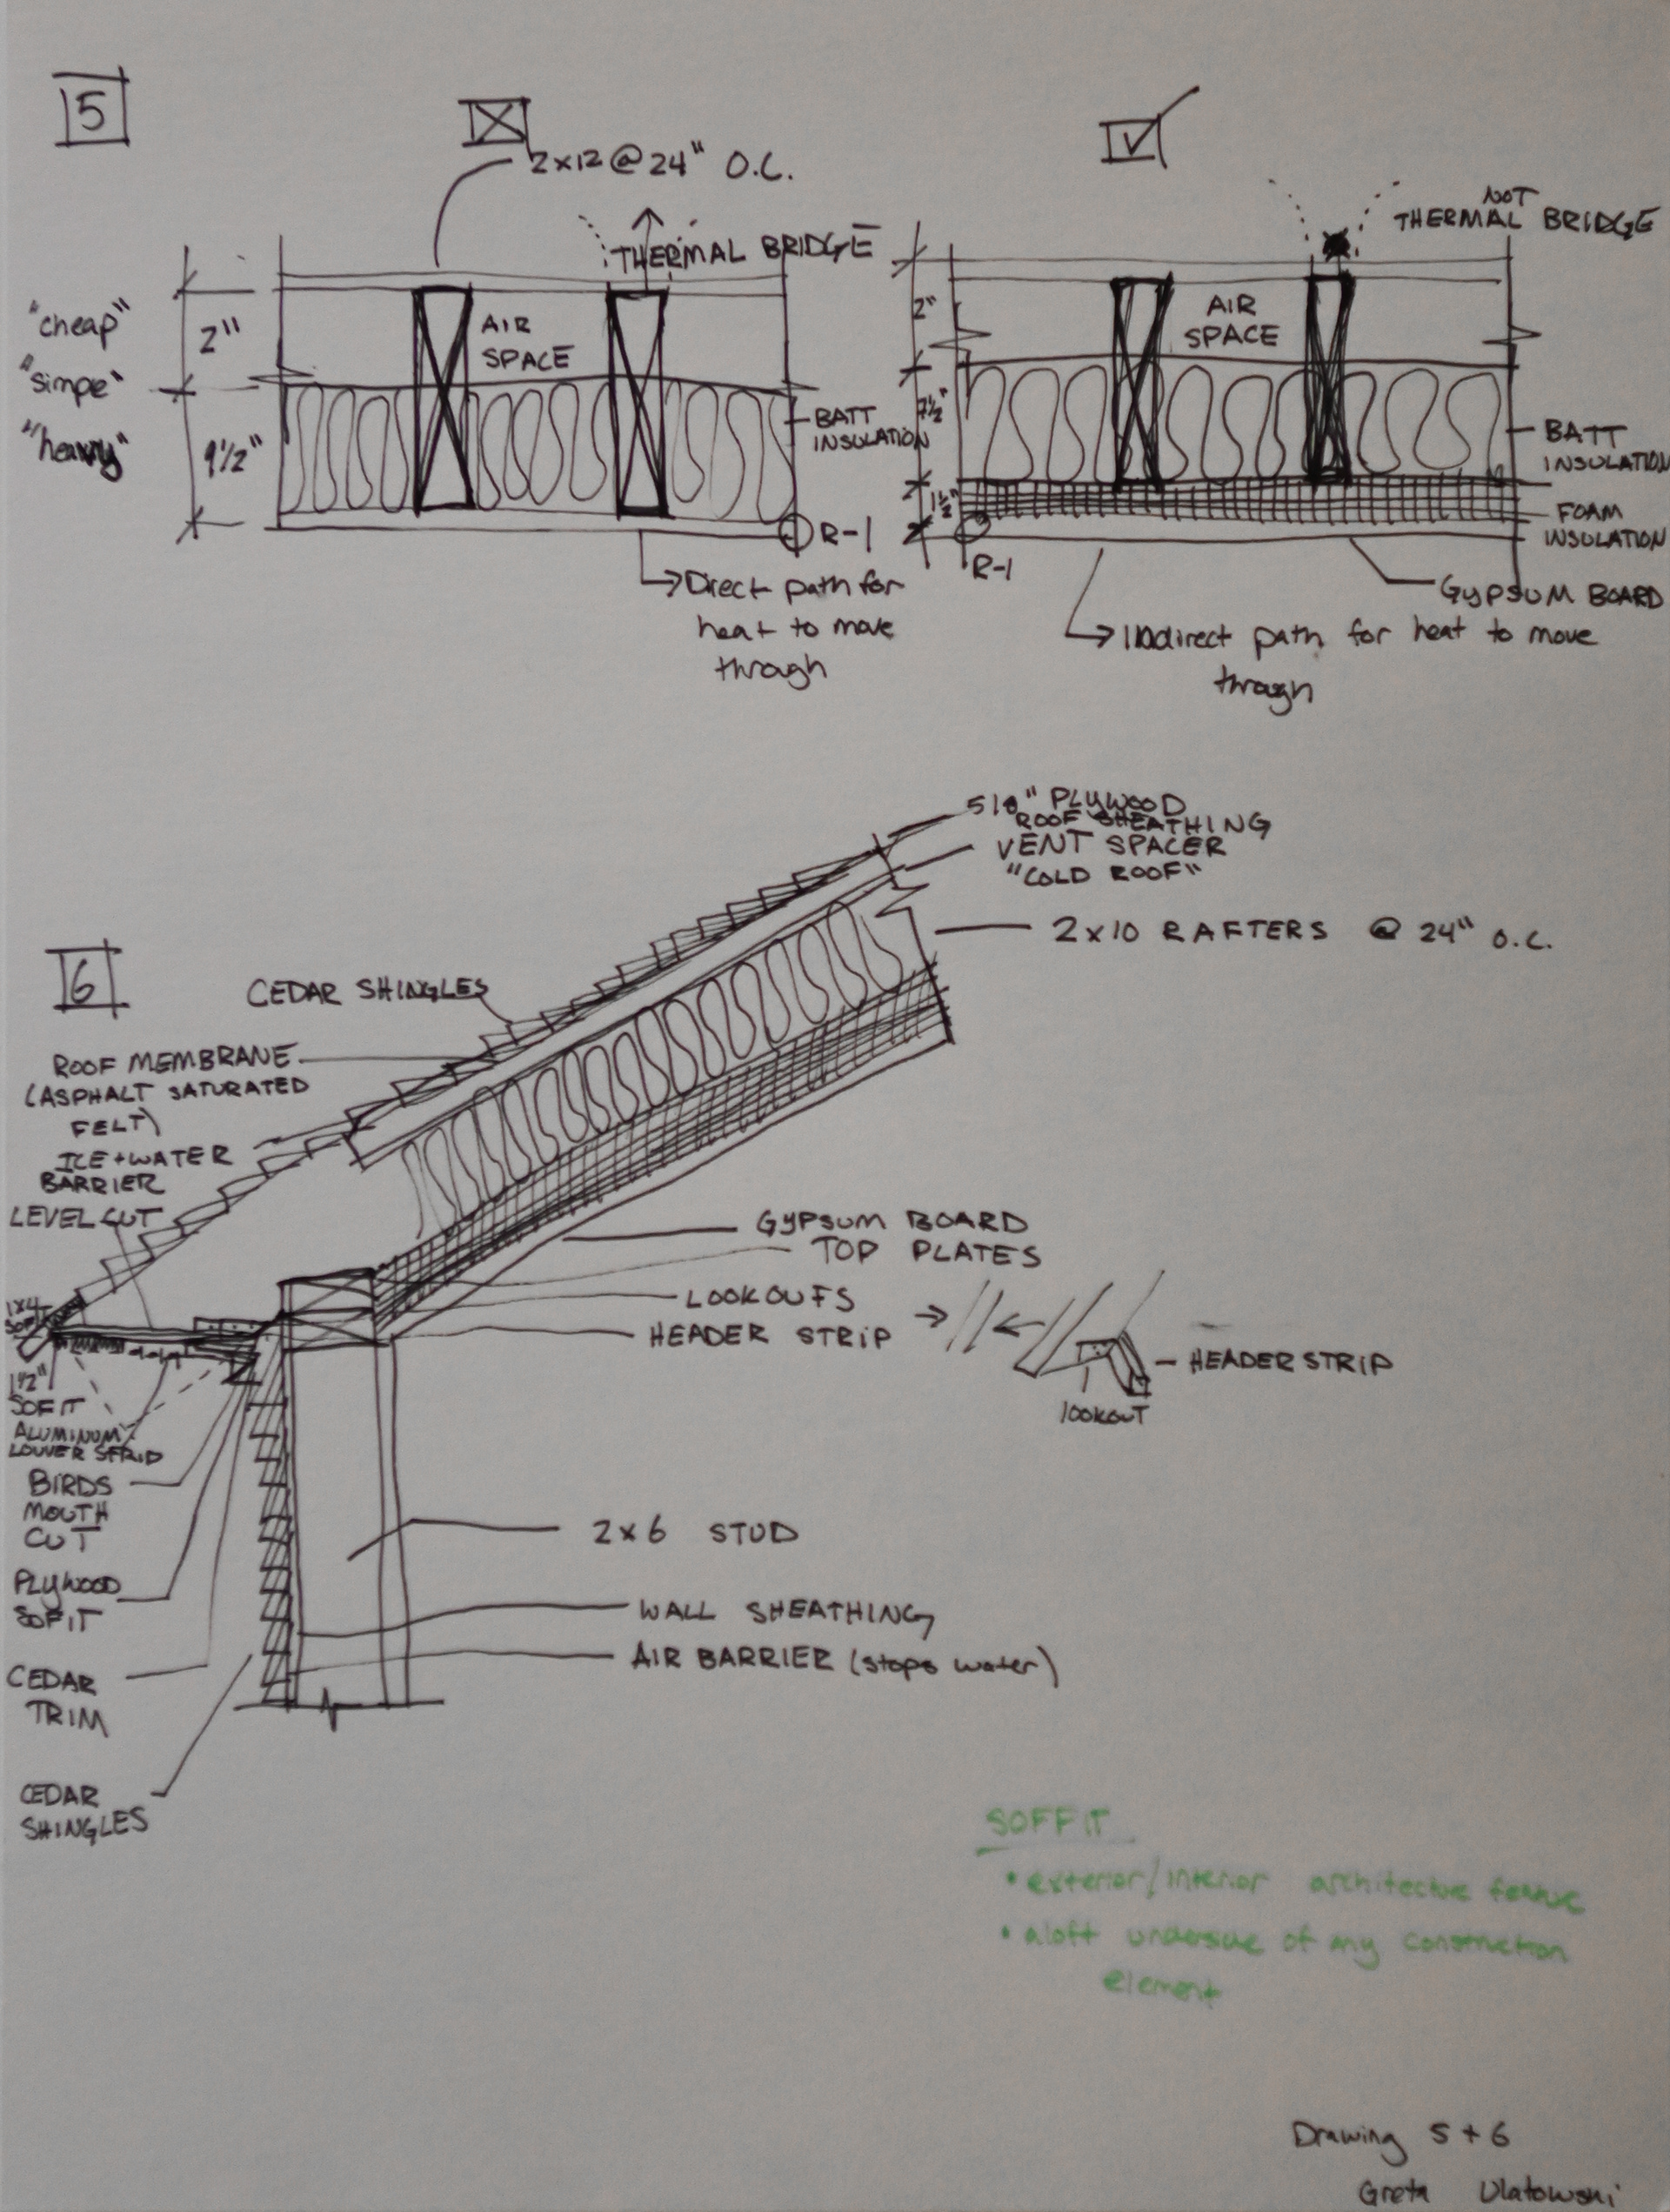 5
2x12 @ 24" O.C.
NOT
THERMAL BRIDGE
THERMAL BRIDGE
"cheap"
"simpe"
"heavy"
2"
9 1/2"
AIR
SPACE
BATT
INSULATION
R-1
Direct path for
heat to move
through
2"
7 1/2"
1 1/2"
AIR
SPACE
BATT
INSULATION
FOAM
INSULATION
R-1
GYPSUM BOARD
Indirect path for heat to move
through
6
5/8" PLYWOOD
ROOF SHEATHING
VENT SPACER
"COLD ROOF"
2x10 RAFTERS @ 24" O.C.
CEDAR SHINGLES
ROOF MEMBRANE
(ASPHALT SATURATED
FELT)
ICE + WATER
BARRIER
LEVEL CUT
1x4
1 1/2"
SOFIT
ALUMINUM
LOUVER STRIP
BIRDS
MOUTH
CUT
PLYWOOD
SOFIT
CEDAR
TRIM
CEDAR
SHINGLES
GYPSUM BOARD
TOP PLATES
LOOKOUTS
HEADER STRIP
HEADER STRIP
lookout
2x6 STUD
WALL SHEATHING
AIR BARRIER (stops water)
SOFFIT
• exterior/interior architecture feature
• aloft underside of any construction
element
Drawing 5 + 6
Greta Ulatowski